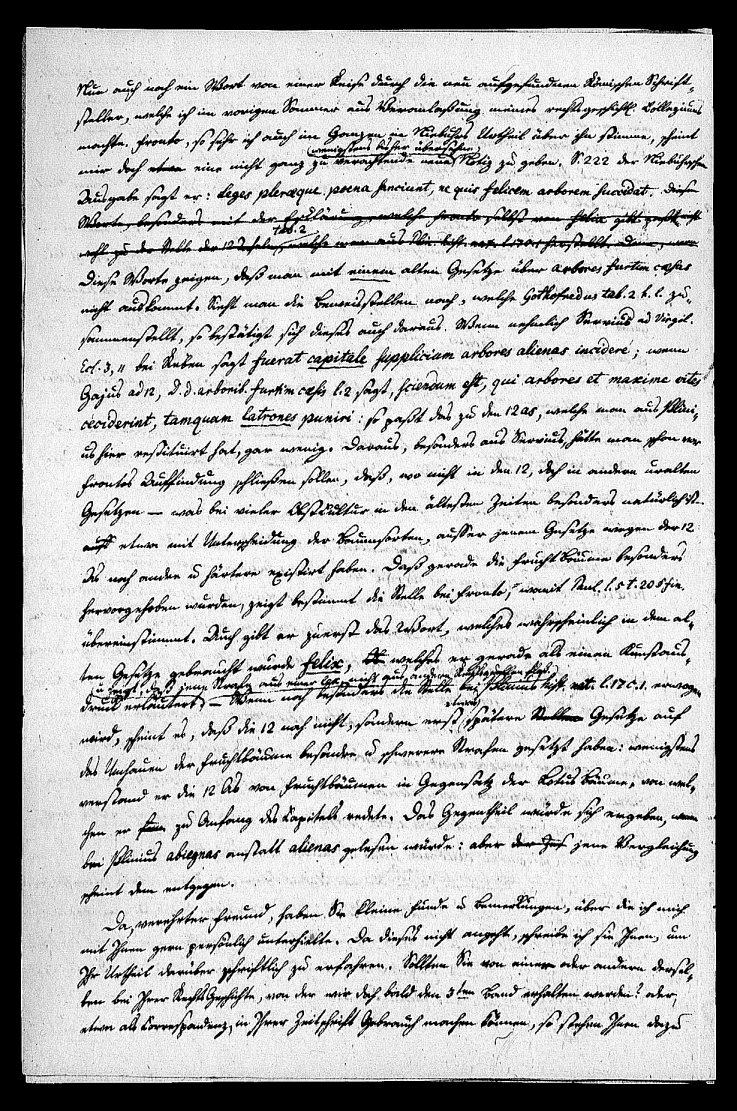 Nun auch noch ein Wort von einer Reise durch die neu aufgefundenen Römischen Schrift-
steller, welche ich im vorigen Sommer aus Veranlaßung meines rechtsgeschichtl. Collegiums
machte. Fronto, so sehr ich auch im Ganzen in Niebuhrs Urtheil über ihn stimme, scheint
wenigstens bisher übersehene,
mir doch etwa eine nicht ganz zu verachtende neue Notiz zu geben. S. 222 der Niebuhrschen
Ausgabe sagt er: Leges pleraeque poena sanciunt, ne quis felicem arborem succidat. Diese
Worte, besonders mit der Erklärung, welche Fronto selbst von felix gibt
tab. 2
nicht zu der Stelle der 12 Tafeln, welche man aus Plin. hist. nat. l. 17 c. 1 herstellt. Denn,
Diese Worte zeigen, daß man mit einem alten Gesetze über arbores furtim caesas
nicht auskommt. Sieht man die Beweisstellen nach, welche Gothofredus tab. 2 h. l. zu-
sammenstellt, so bestätigt sich dieses auch daraus. Wenn nehmlich Servius ad Virgil.
Ecl. 3, 11 bei Reben sagt fuerat capitale supplicium arbores alienas incidere; wenn
Gajus ad 12, D. d. arborib. furtim caesis l. 2 sagt, sciendum est, qui arbores et maxime vites
ceciderint, tamquam latrones puniri: so paßt das zu den 12 as, welche man aus Plini-
us hier restituirt hat, gar wenig. Daraus, besonders aus Servius, hätte man schon vor
Frontos Auffindung schließen sollen, daß, wo nicht in den 12, doch in andern uralten
Gesetzen – was bei vieler Obstkultur in den ältesten Zeiten besonders natürlich ist –
auch etwa mit Unterscheidung der Baumsorten, ausser jenem Gesetze wegen der 12
As noch andre u härtere existirt haben. Daß gerade die Fruchtbäume besonders
hervorgehoben wurden, zeigt bestimmt die Stelle bei Fronto, womit Paul. l. 5 t. 20 § fin.
übereinstimmt. Auch gibt er zuerst das Wort, welches wahrscheinlich in dem al-
ten Gesetze gebraucht wurde felix, welches er gerade als einen Kunstaus-
u zeigt, daß jene Strafe aus einer lex, nicht aus andern Rechtsquellen floß.
druck erläutert – Wenn noch besonders die Stelle bei Plinius hist. nat. l. 17 c. 1. erwogen
etwa
wird, scheint es, daß die 12 noch nicht, sondern erst spätere Stellen Gesetze auf
das Umhauen der Fruchtbäume besondre u schwerere Strafen gesetzt haben: wenigstens
verstand er die 12 As von Fruchtbäumen in Gegensatz der Lotusbäume, von wel-
chen er zu Anfang des Kapitels redete. Das Gegentheil würde sich ergeben, wenn
bei Plinius abiegnas anstatt alienas gelesen würde: aber jene Vergleichung
scheint dem entgegen.
Da, verehrter Freund, haben Sie kleine Funde u Bemerkungen, über die ich mich
mit Ihnen gern persönlich unterhielte. Da dieses nicht angeht, schreibe ich sie Ihnen, um
Ihr Urtheil darüber schriftlich zu erfahren. Sollten Sie von einem oder andern dersel-
ben bei Ihrer Rechtsgeschichte, von der wir doch bald den 3ten Band erhalten werden? oder,
etwa als Correspondenz, in Ihrer Zeitschrift Gebrauch machen können, so stehen Ihnen dazu